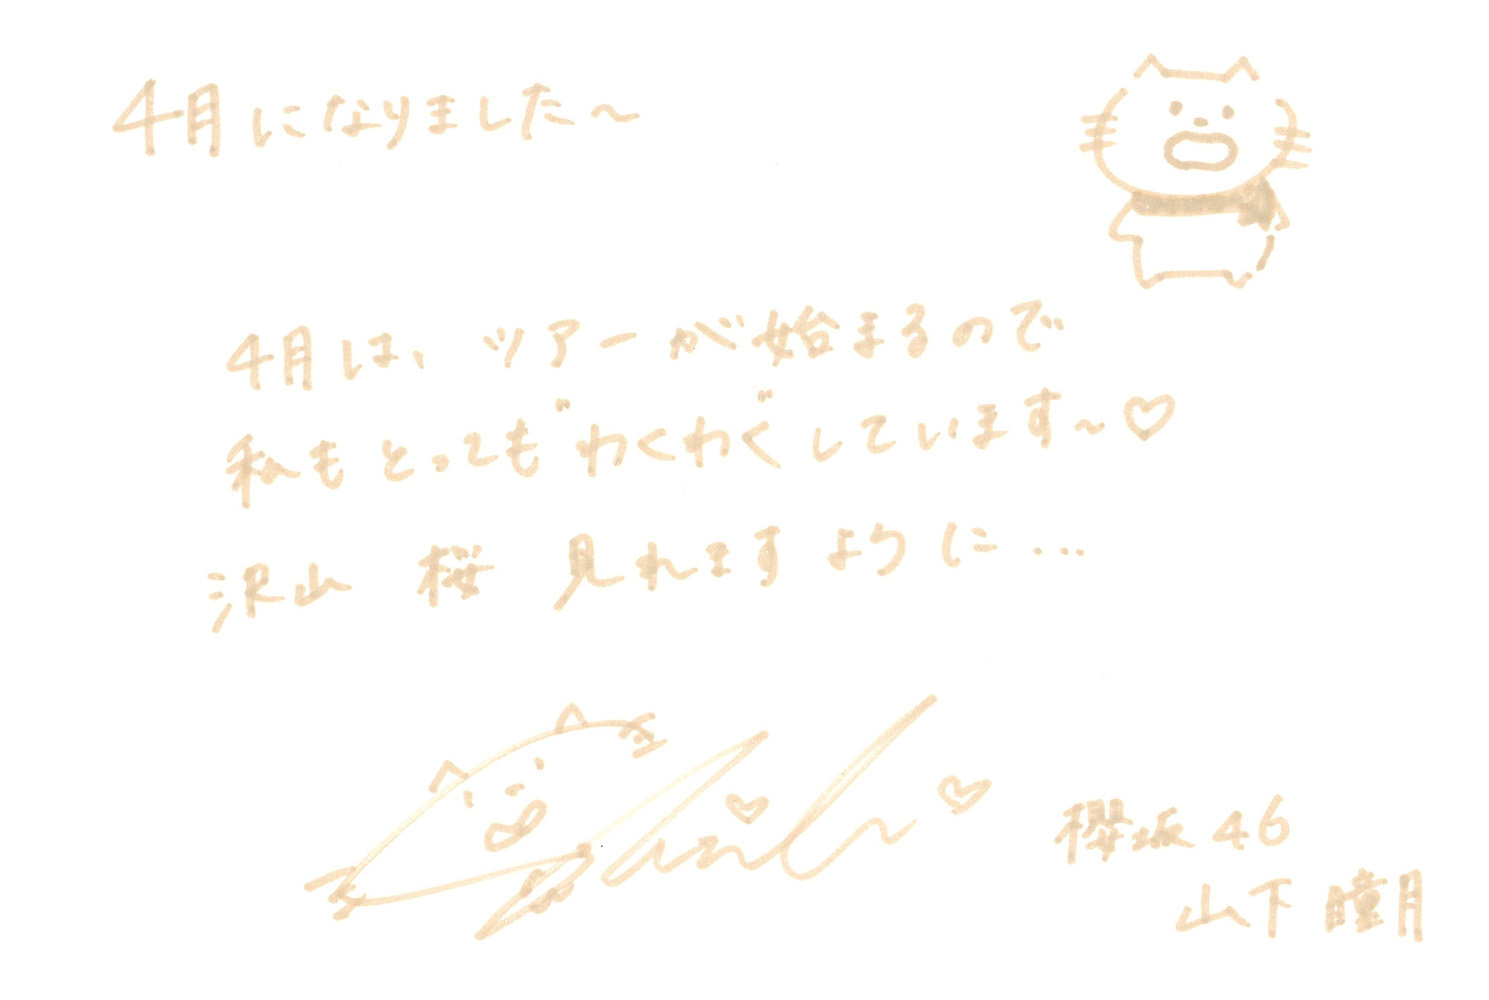 4月になりました〜
4月は、ツアーが始まるので
私もとっても"わくわく"しています〜♡
沢山 桜 見れますように…
櫻坂46
山下 瞳月